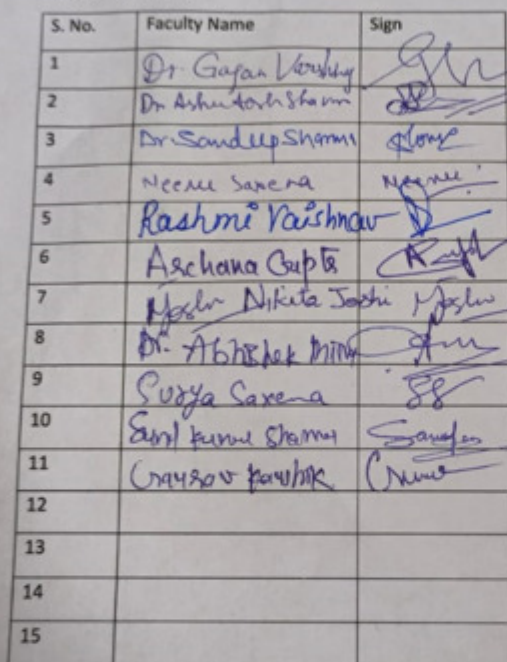 S. No. Faculty Name Sign
1 Dr. Gagan Varshney
2 Dr. Ashutosh Sharma
3 Dr. Sandeep Sharma
4 Neeru Saxena Neeru
5 Rashmi Vaishnav
6 Archana Gupta
7 Nikita Joshi
8 Dr. Abhishek
9 Surya Saxena SS
10 Sunil Kumar Sharma
11 Gaurav Kaushik
12
13
14
15